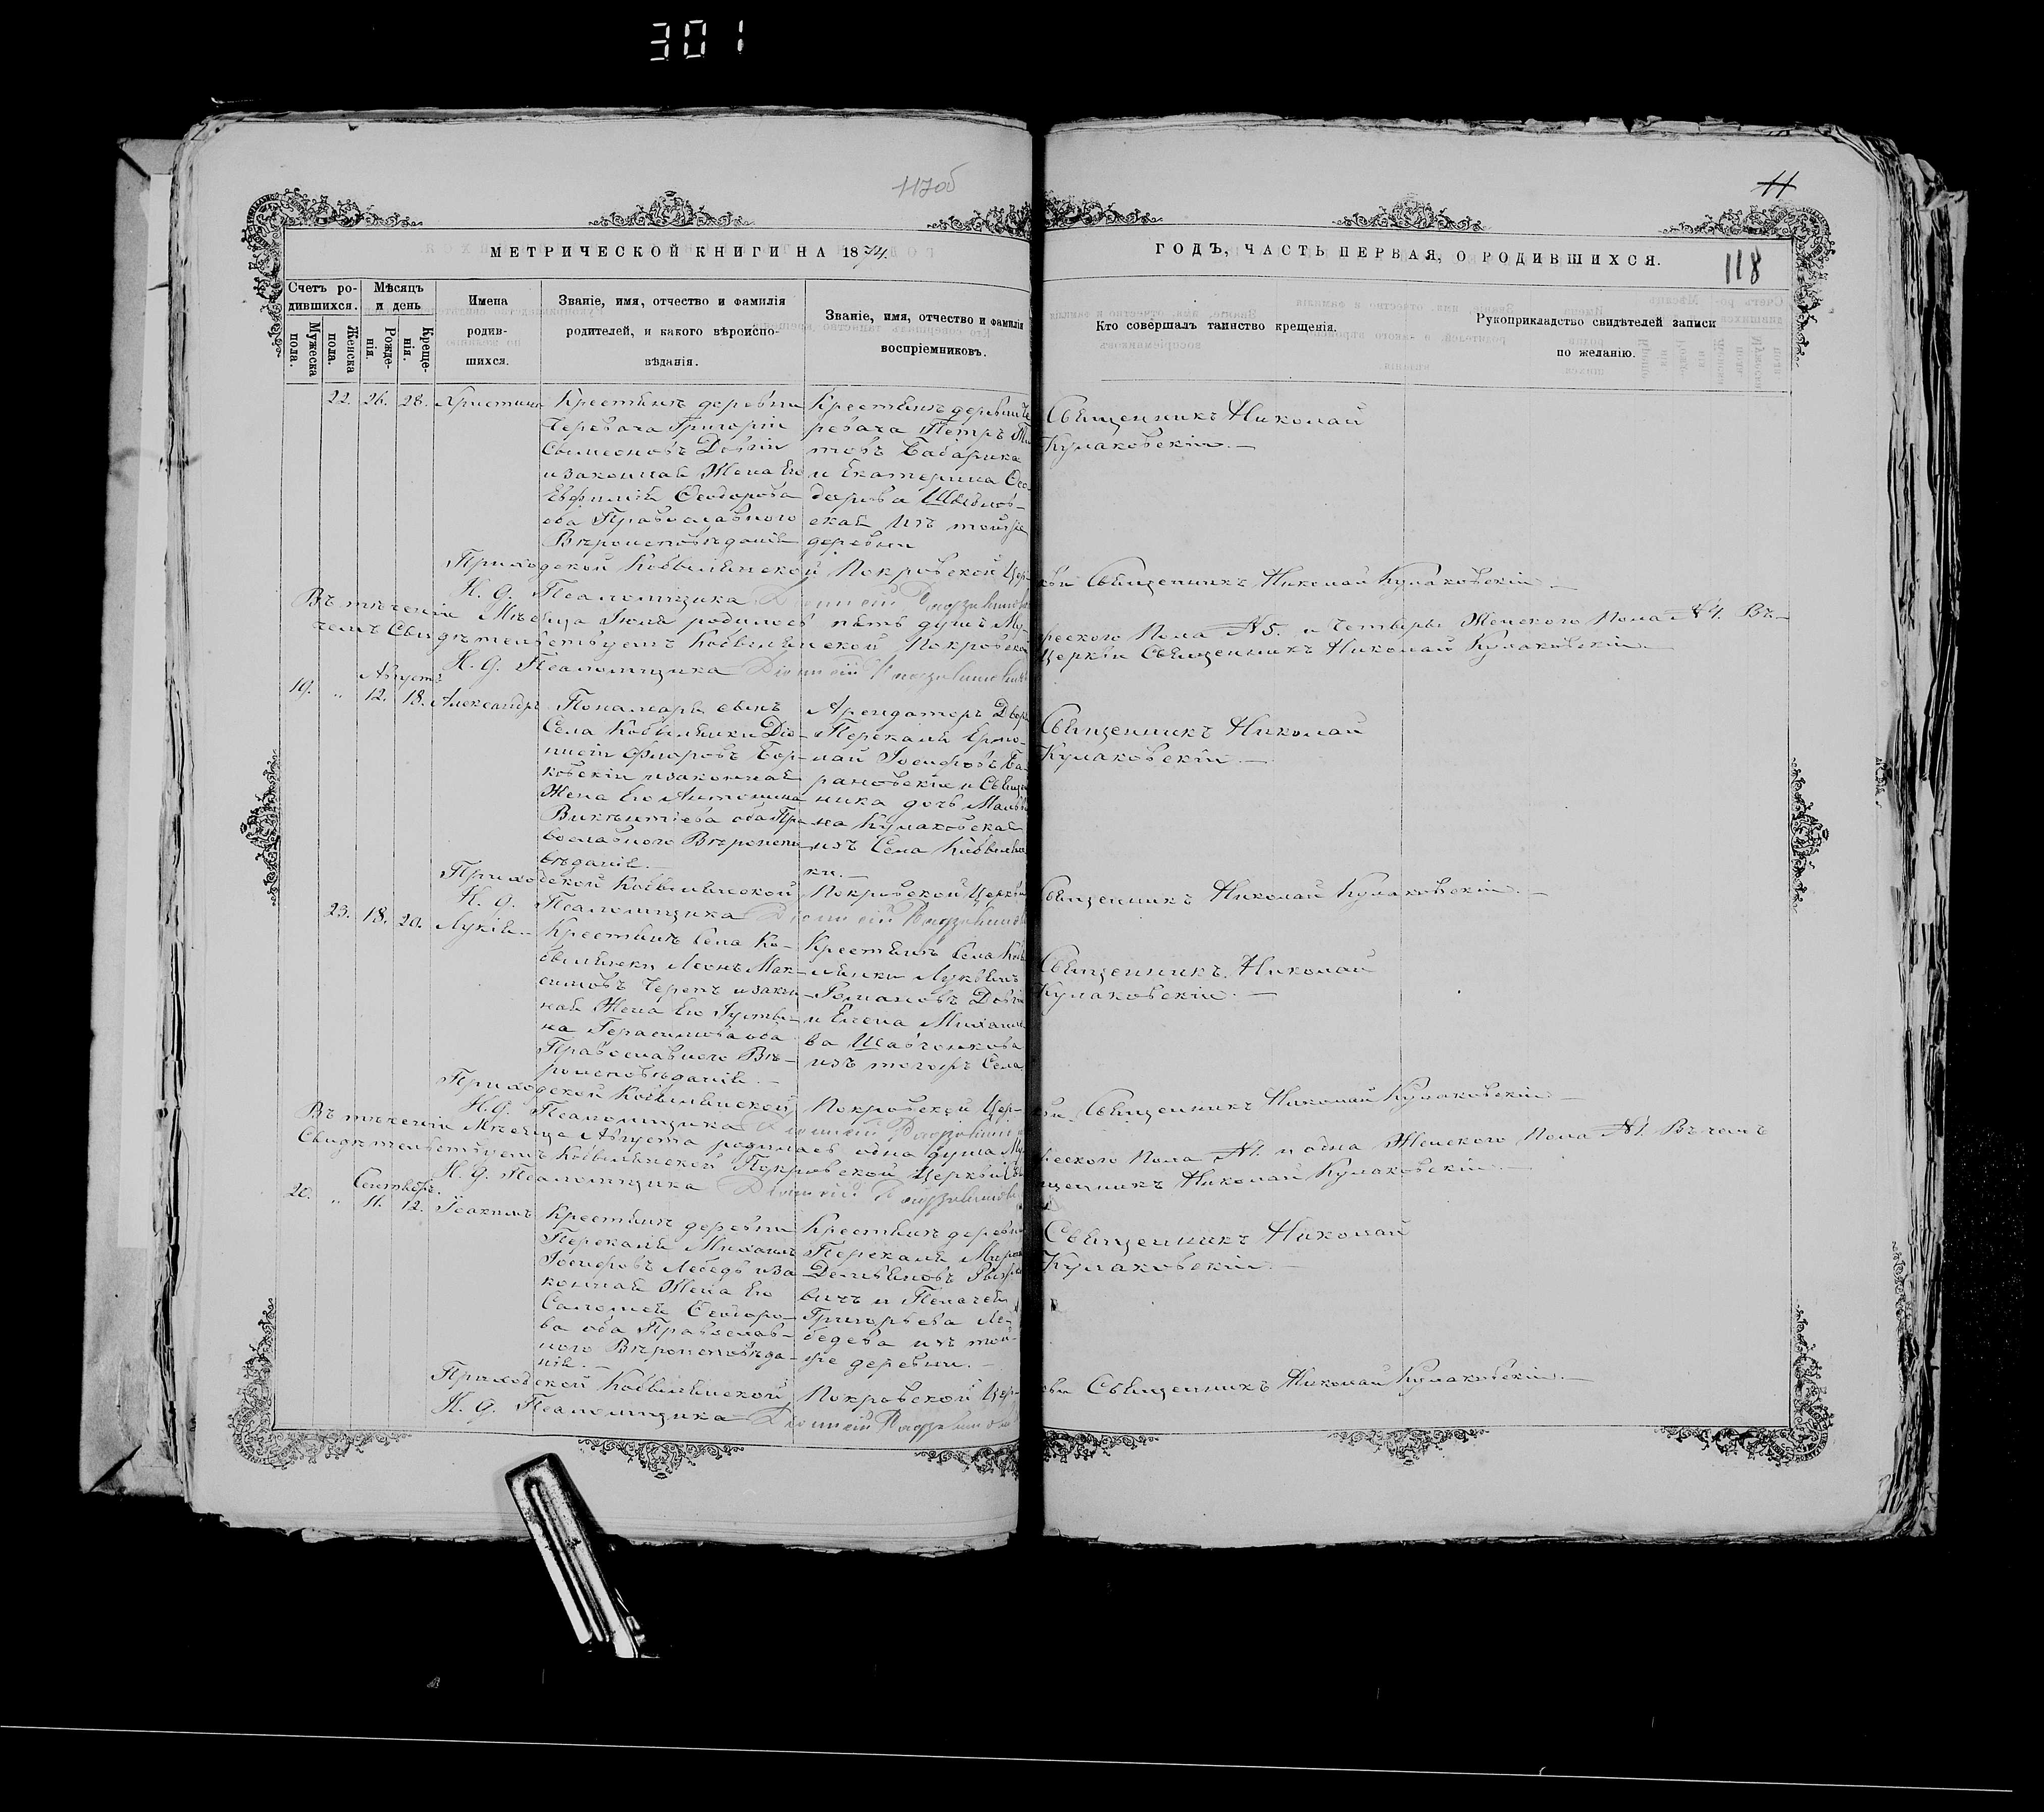 301
117об
11
МЕТРИЧЕСКОЙ КНИГИ НА 1874.
ГОДЪ, ЧАСТЬ ПЕРВАЯ, О РОДИВШИХСЯ.
118
Счетъ ро-
дившихся.
Мужеска
пола.
Женска
пола.
Мѣсяцъ
и день
Рожде-
нія.
Креще-
нія.
Имена
родив-
шихся.
Званіе, имя, отчество и фамилія
родителей, и какого вѣроиспо-
вѣданія.
Званіе, имя, отчество и фамилія
воспріемниковъ.
Кто совершалъ таинство крещенія.
Рукоприкладство свидѣтелей записи
по желанію.
22. 26. 28. Христина
Крестьянъ деревни
Черевача Григорій
Симеоновъ Довгій
и законная Жена Его
Евфимія Ѳеодорова
оба Православнаго
Вѣроисповѣданія
Крестьянъ деревни Че
ревача Петръ
товъ Бабарика
и Екатерина Ѳео-
дорова
ская Изъ тойже
деревни
Священникъ Николай
Кулаковскій.—
Приходской Кобылянской Покровской Цер-
кви Священникъ Николай Кулаковскій.—
И. д. Псаломщика Діонисій
Въ теченіи Мѣсяца Іюля родилось пять душъ Му-
жескаго Пола №5. и четыре Женскаго Пола №4. Въ-
чемъ Свидѣтельствуетъ Кобылянской Покровской
Церкви Священникъ Николай Кулаковскій.—
И. д. Псаломщика Діонисій
Августъ
19. „ 12. 18. Александръ
Пономарь сынъ
Села Кобылянки Діо-
нисій Флоровъ Бер-
ковскій и законная
Жена Его Антонина
Викентіева оба Пра
вославнаго Вѣроиспо
вѣданія.—
Арендаторъ Двора
Перекаля Ермо-
лай Іосифовъ Ба-
рановскій и Священ
ника дочь
на Кулаковская
изъ Села Кобылян
ки.—
Священникъ Николай
Кулаковскій.—
Приходской Кобылянской Покровской Церкви
Священникъ Николай Кулаковскій.—
И. д. Псаломщика Діонисій
23. 18. 20. Лукія.
Крестьянъ Села Ко-
былянки Леонъ Мак-
симовъ Черепъ и закон
ная Жена Его Густи-
на Герасимова оба
Православнаго Вѣ-
роисповѣданія.—
Крестьянъ Села Кобы
лянки Лукьянъ
Романовъ Довгій
и Елена Михайло
ва Шавчонкова
изъ тогожъ Села
Священникъ Николай
Кулаковскій.—
Приходской Кобылянской Покровской Цер-
кви Священникъ Николай Кулаковскій.—
И. д. Псаломщика Діонисій
Въ теченіи Мѣсяца Августа родилась одна душа Му
жескаго Пола №1. и одна Женскаго Пола №1. Въ чемъ
Свидѣтельствуетъ Кобылянской Покровской Церкви Свя
щенникъ Николай Кулаковскій.—
И. д. Псаломщика Діонисій
Сентябрь.
20. „ 11. 12. Іоакимъ
Крестьянъ деревни
Перекаля Михаилъ
Іосифовъ Лебедь и за
конная Жена Его
Саломея Ѳеодоро-
ва оба Православ-
наго Вѣроисповѣда-
нія.—
Крестьянъ деревни
Перекаля Миронъ
Демьяновъ
вичъ и Пелагея
Григорьева Ле-
бедева изъ той-
же деревни.—
Священникъ Николай
Кулаковскій.—
Приходской Кобылянской Покровской Цер-
кви Священникъ Николай Кулаковскій.—
И. д. Псаломщика Діонисій